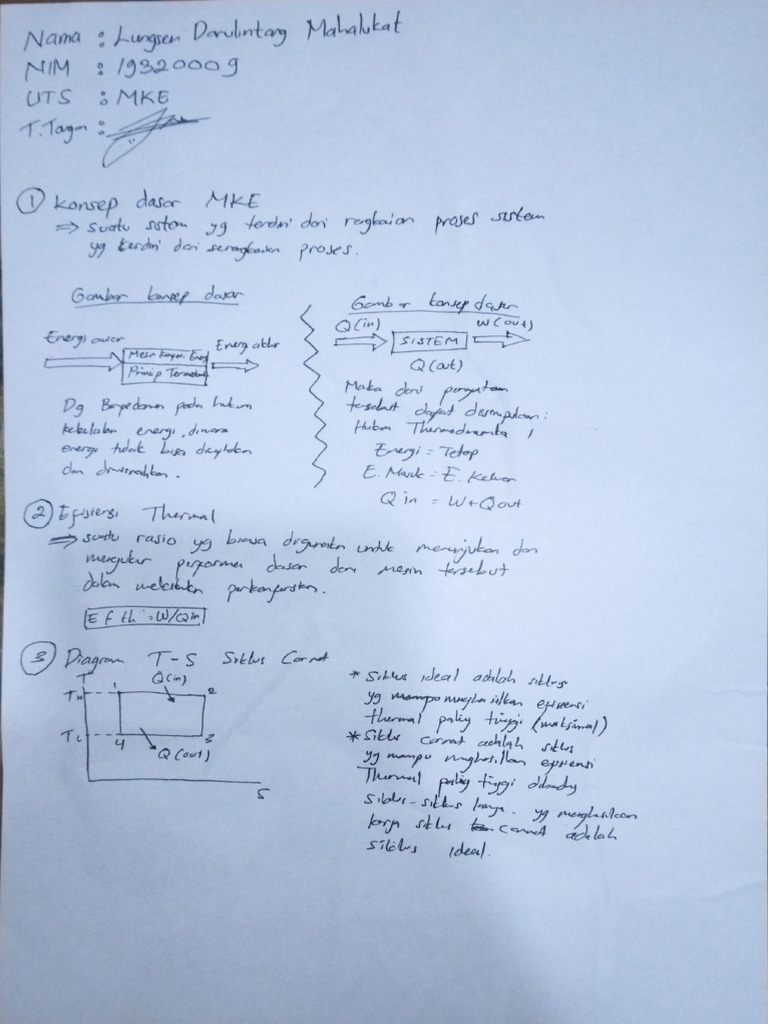 Nama : Lungsen Danulintang Mahalukat
NIM : 19320009
UTS : MKE
T.Tagn :
1 Konsep dasar MKE
⇒ suatu sistem yg terdiri dari rangkaian proses sistem
yg terdiri dari serangkaian proses.
Gambar konsep dasar
Energi awal
Mesin Konver. Energi
Prinsip Termodi
Energi akhir
Dg Berpedoman pada hukum
kekekalan energi, dimana
energi tidak bisa diciptakan
dan dimusnahkan.
Gambar konsep dasar
Q(in)
SISTEM
W(out)
Q(out)
Maka dari pernyataan
tersebut dapat disimpulkan:
Hukum Thermodinamika 1
Energi = Tetap
E. Masuk = E. Keluar
Q in = W+Qout
2 Efisiensi Thermal
⇒ suatu rasio yg biasa digunakan untuk menunjukan dan
mengukur performa dasar dari mesin tersebut
dalam melakukan perkonfersian.
E f th = W/Qin
3 Diagram T-S Siklus Carnot
T
Q(in)
TH
1
2
TL
4
3
Q(out)
S
* Siklus ideal adalah siklus
yg mampu menghasilkan efisiensi
thermal paling tinggi (maksimal)
* Siklus carnot adalah siklus
yg mampu menghasilkan efisiensi
Thermal paling tinggi dibanding
siklus-siklus lainya. yg menghasilkan
kerja siklus carnot adalah
siklus ideal.